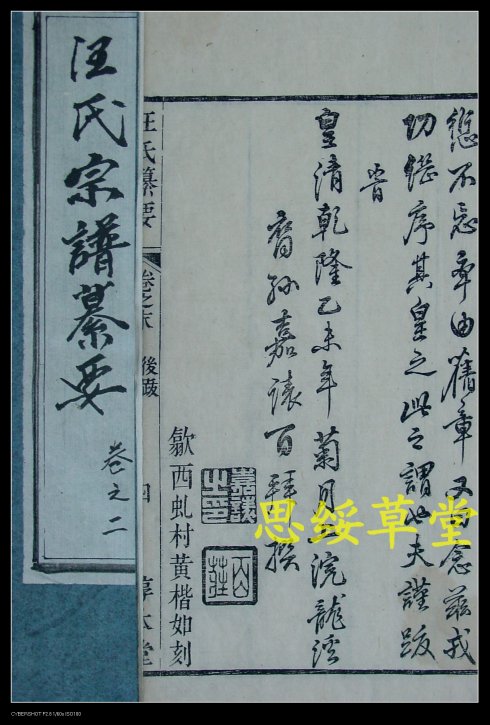 愆不忘率由舊章又曰念茲戎
功繼序其皇之此之謂也夫謹跋
旹
皇清乾隆乙未年菊月浣龍溪
裔孫嘉謨百拜撰
嘉謨之印
歙西虬村黃楷如刻
汪氏纂要
卷之末
後跋
四
汪氏宗譜纂要
卷之二
思綏草堂
CYBERSHOT F2.8 1/60s ISO160